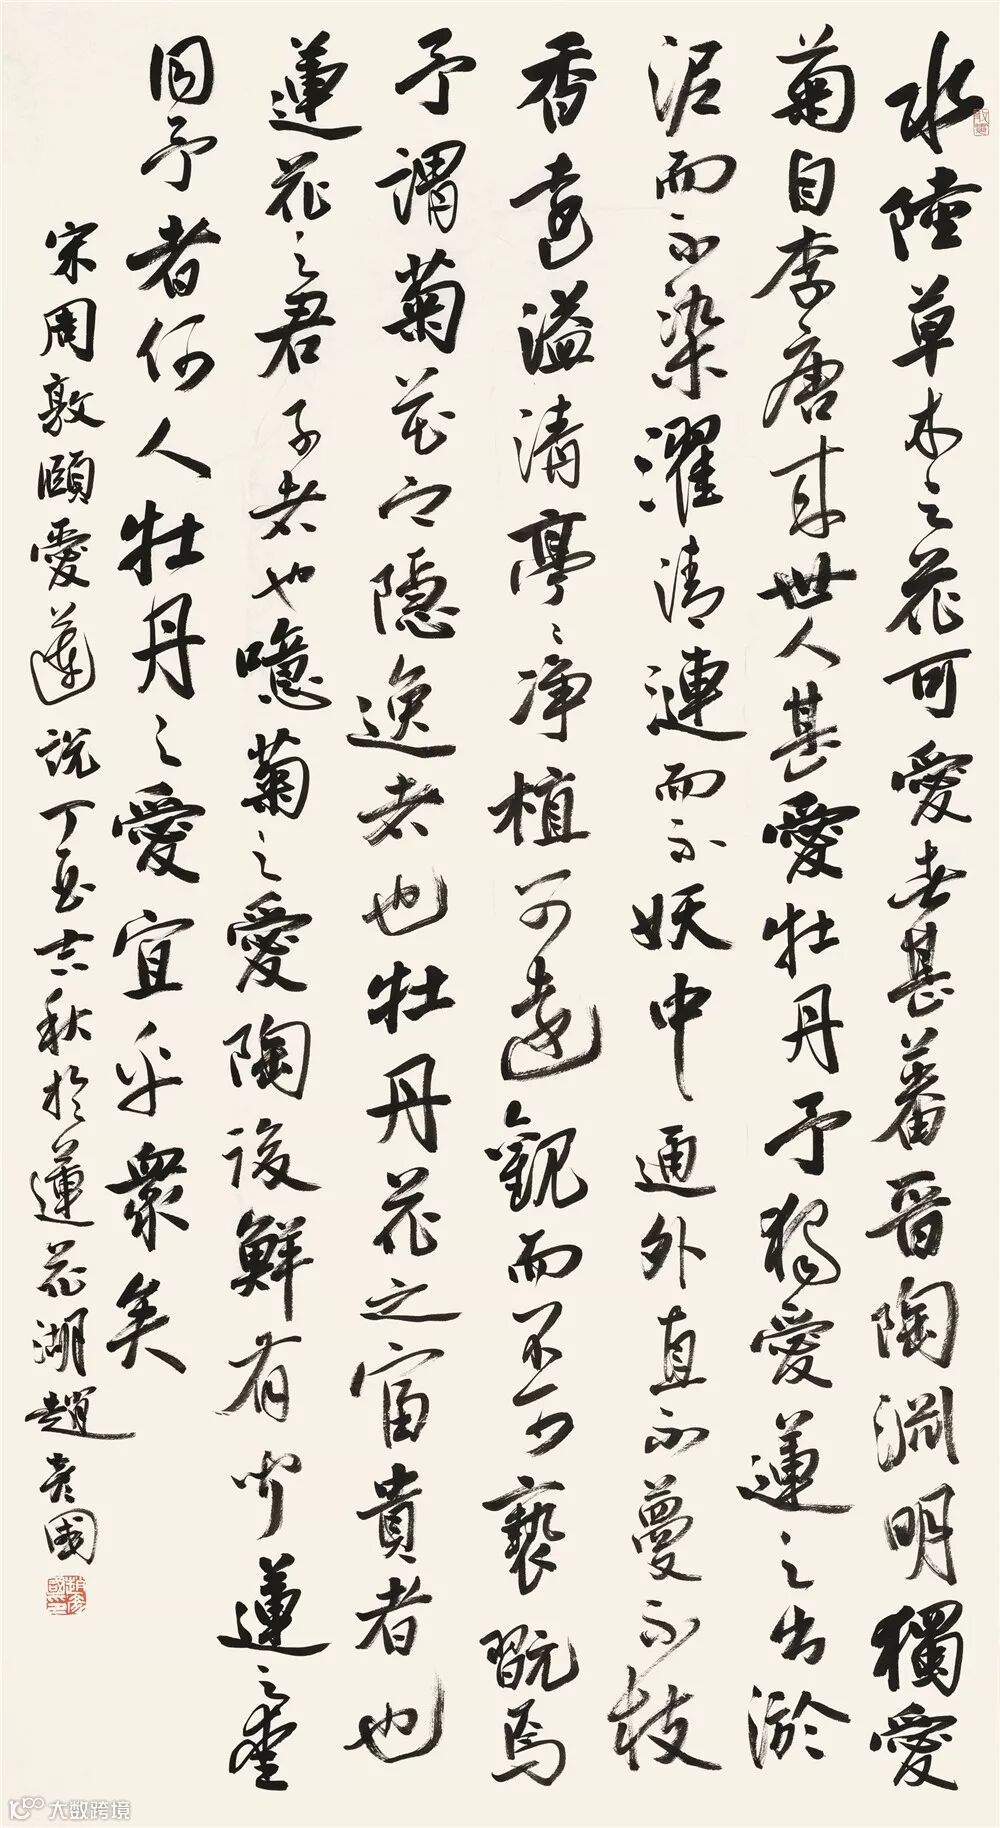 水陸草木之花可愛者甚蕃晋陶淵明獨愛
菊自李唐来世人甚愛牡丹予獨愛蓮之出淤
泥而不染濯清漣而不妖中通外直不蔓不枝
香遠溢清亭〻淨植可遠觀而不可褻翫焉
予謂菊花之隱逸者也牡丹花之富貴者也
蓮花之君子者也噫菊之愛陶後鮮有聞蓮之愛
同予者何人牡丹之愛宜乎衆矣
宋周敦頤愛蓮説丁酉吉秋於蓮花湖趙彦國
大数跨境